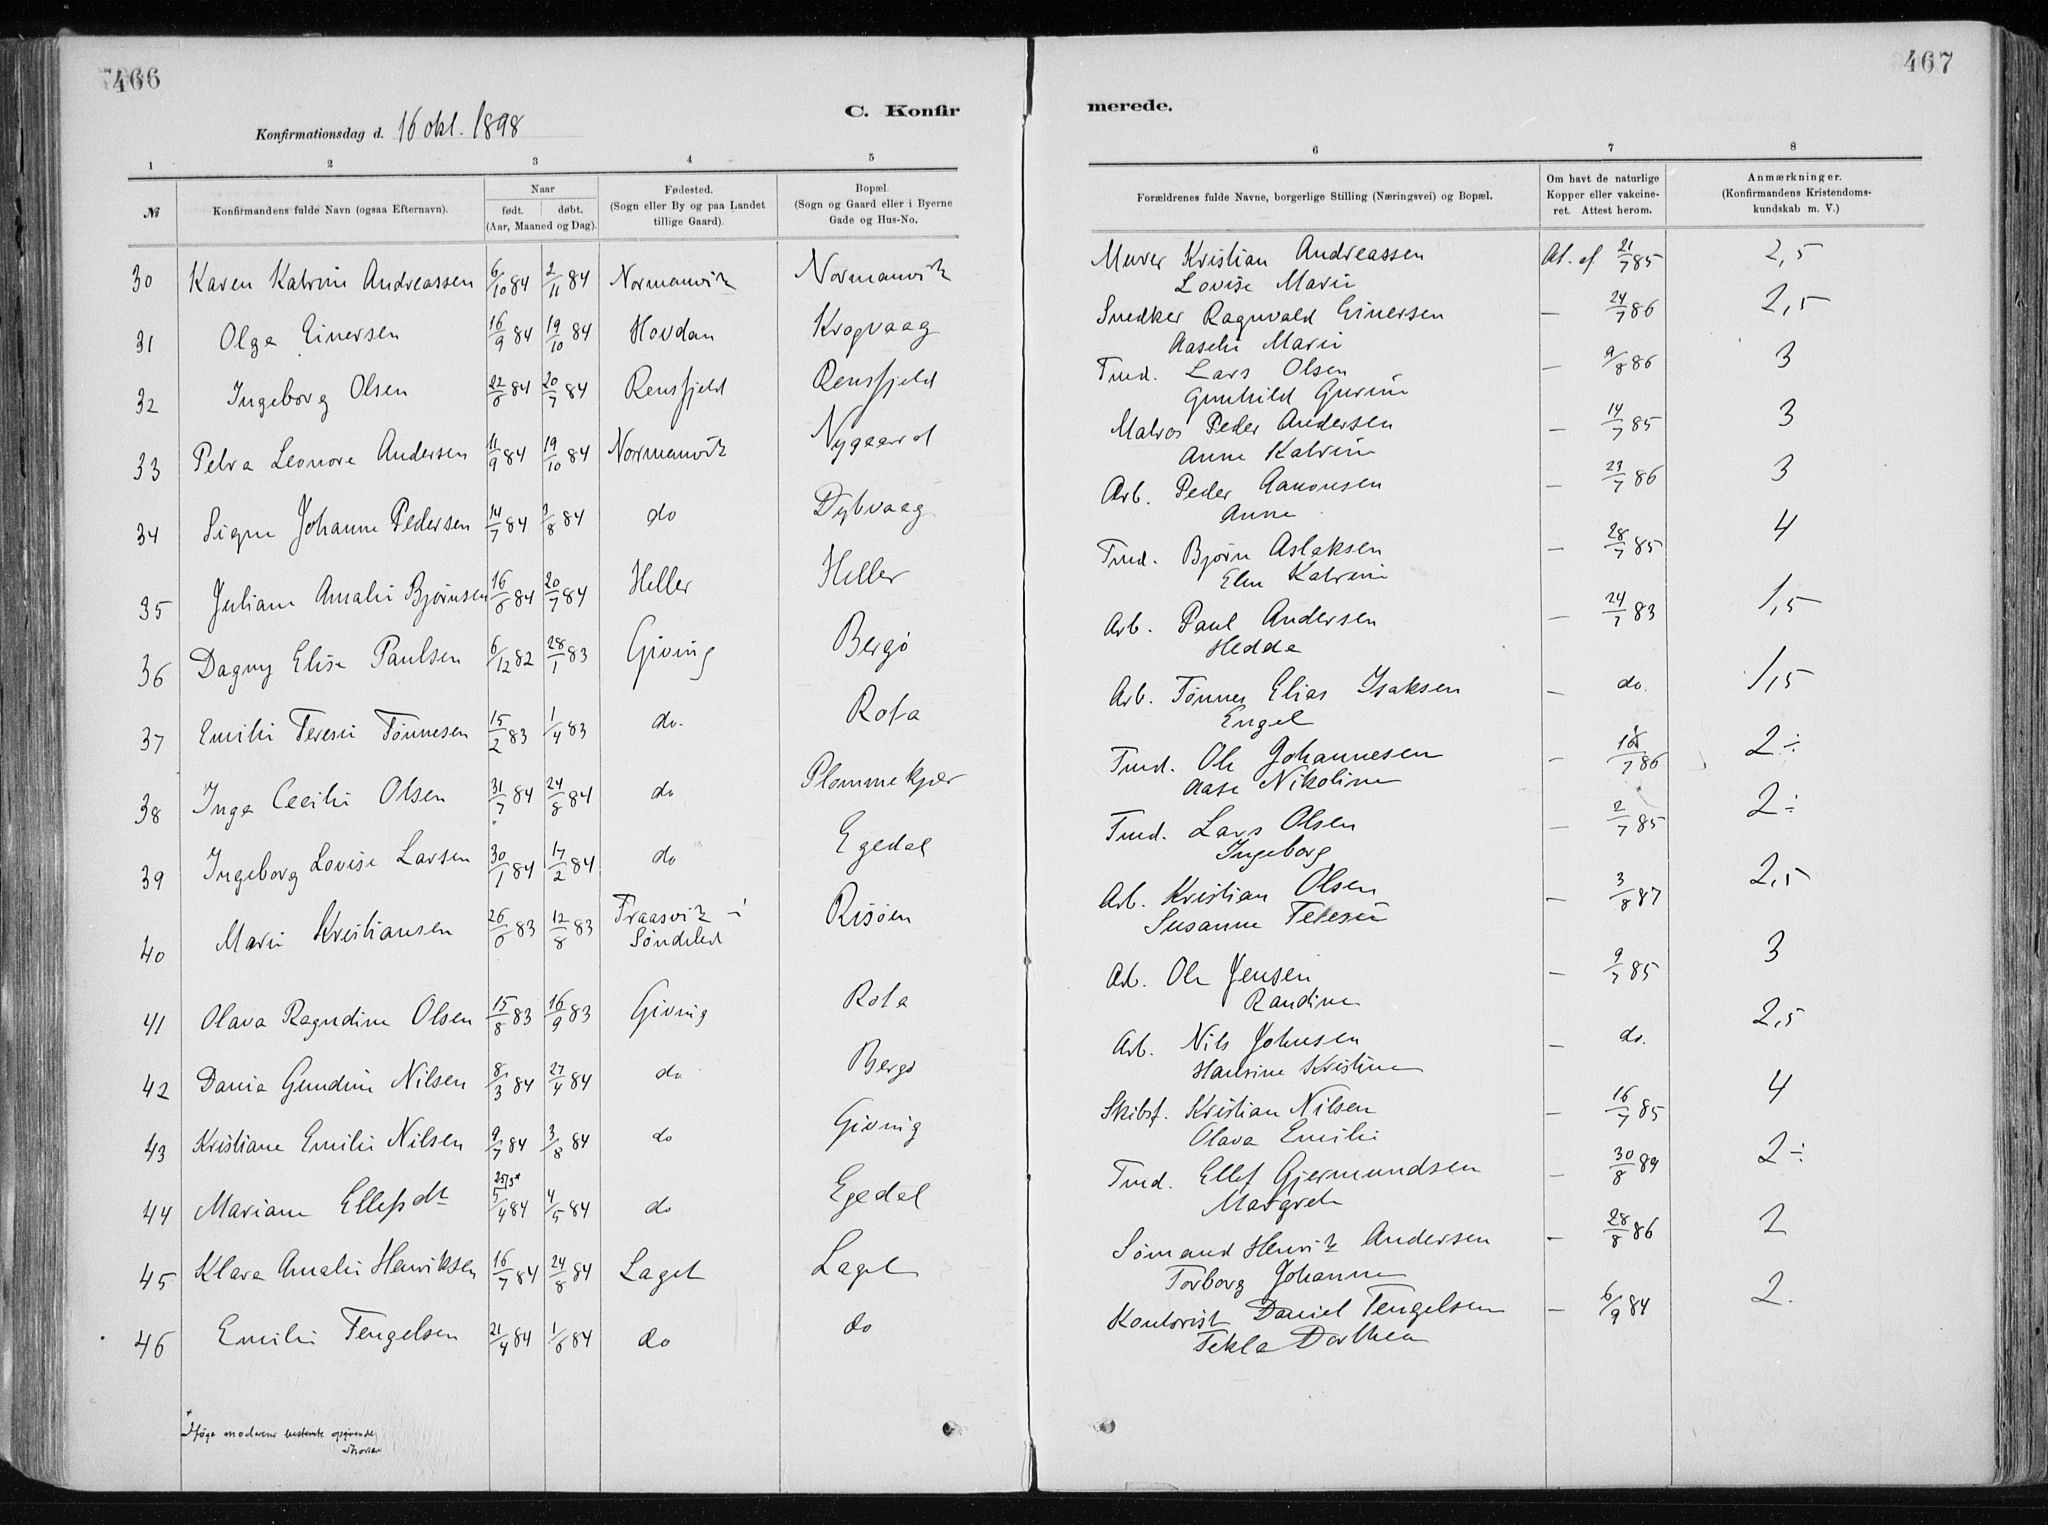 466
467
C. Konfir
merede.
Konfirmationsdag d. 16 okt. 1898
1 2 3 4 5
6 7 8
№ Konfirmandens fulde Navn (ogsaa Efternavn). Naar født. døbt. (Aar, Maaned og Dag). Fødested. (Sogn eller By og paa Landet tillige Gaard). Bopæl. (Sogn og Gaard eller i Byerne Gade og Hus-No.
Forældrenes fulde Navne, borgerlige Stilling (Næringsvei) og Bopæl. Om havt de naturlige Kopper eller vakcineret. Attest herom. Anmærkninger. (Konfirmandens Kristendomskundskab m. V.)
30 Karen Katrine Andreassen 6/10 84 2/11 84 Normanvik Normanvik Murer Kristian Andreassen At. af 21/7 85 2,5
Lovise Marie
31 Olga Einersen 16/9 84 19/10 84 Hovdan Krogvaag Snedker Ragnvald Einersen — 24/7 86 2,5
Aaselie Marie
32 Ingeborg Olsen 22/6 84 20/7 84 Rensfjeld Rensfjeld Tmd. Lars Olsen — 9/8 86 3
Gunhild Gurine
33 Petra Leonore Andersen 11/9 84 19/10 84 Normanvik Nygaard Matros Peder Andersen — 14/7 85 3
Anne Katrine
34 Signe Johanne Pedersen 14/7 84 3/8 84 do Dybvaag Arb. Peder Aanonsen — 23/7 86 3
Anne
35 Juliane Amalie Bjørnsen 16/6 84 20/7 84 Heller Heller Tmd. Bjørn Aslaksen — 28/7 85 4
Elen Katrine
36 Dagny Elise Paulsen 6/12 82 28/1 83 Giving Bergø Arb. Paul Andersen — 24/7 83 1,5
Hedda
37 Emilie Teresie Tønnesen 15/2 83 1/4 83 do. Rota Arb. Tønnes Elias Isaksen — do. 1,5
Engel
38 Inga Cecilie Olsen 31/7 84 24/8 84 do Plommekjær Tmd. Ole Johannesen — 16/7 86 2÷
Aase Nikoline
39 Ingeborg Lovise Larsen 30/1 84 17/2 84 do Egedal Tmd. Lars Olsen — 2/7 85 2÷
Ingeborg
40 Marie Kristiansen 26/6 83 12/8 83 Traasvik i Risøen Arb. Kristian Olsen — 3/8 87 2,5
Søndeled Susanne Teresie
41 Olava Ragndine Olsen 15/8 83 16/9 83 Giving Rota Arb. Ole Jensen — 9/7 85 3
Randine
42 Dania Gundine Nilsen 8/3 84 27/4 84 do Bergø Arb. Nils Johnsen — do. 2,5
Hansine Kristine
43 Kristiane Emilie Nilsen 9/7 84 3/8 84 do Giving Skibsf. Kristian Nilsen — 16/7 85 4
Olava Emilie
25/3*
44 Mariane Ellefsdt 5/4 84 4/5 84 do Egedal Tmd. Ellef Gjermundsen — 30/8 89 2÷
Margrete
45 Klara Amalie Henriksen 16/7 84 24/8 84 Laget Laget Sømand Henrik Andersen — 28/8 86 2
Torborg Johanne
46 Emilie Tengelsen 21/4 84 1/6 84 do do Kontorist Daniel Tengelsen — 6/9 84 2.
Tekla Dorthea
* Ifølge moderens bestemte opgivende